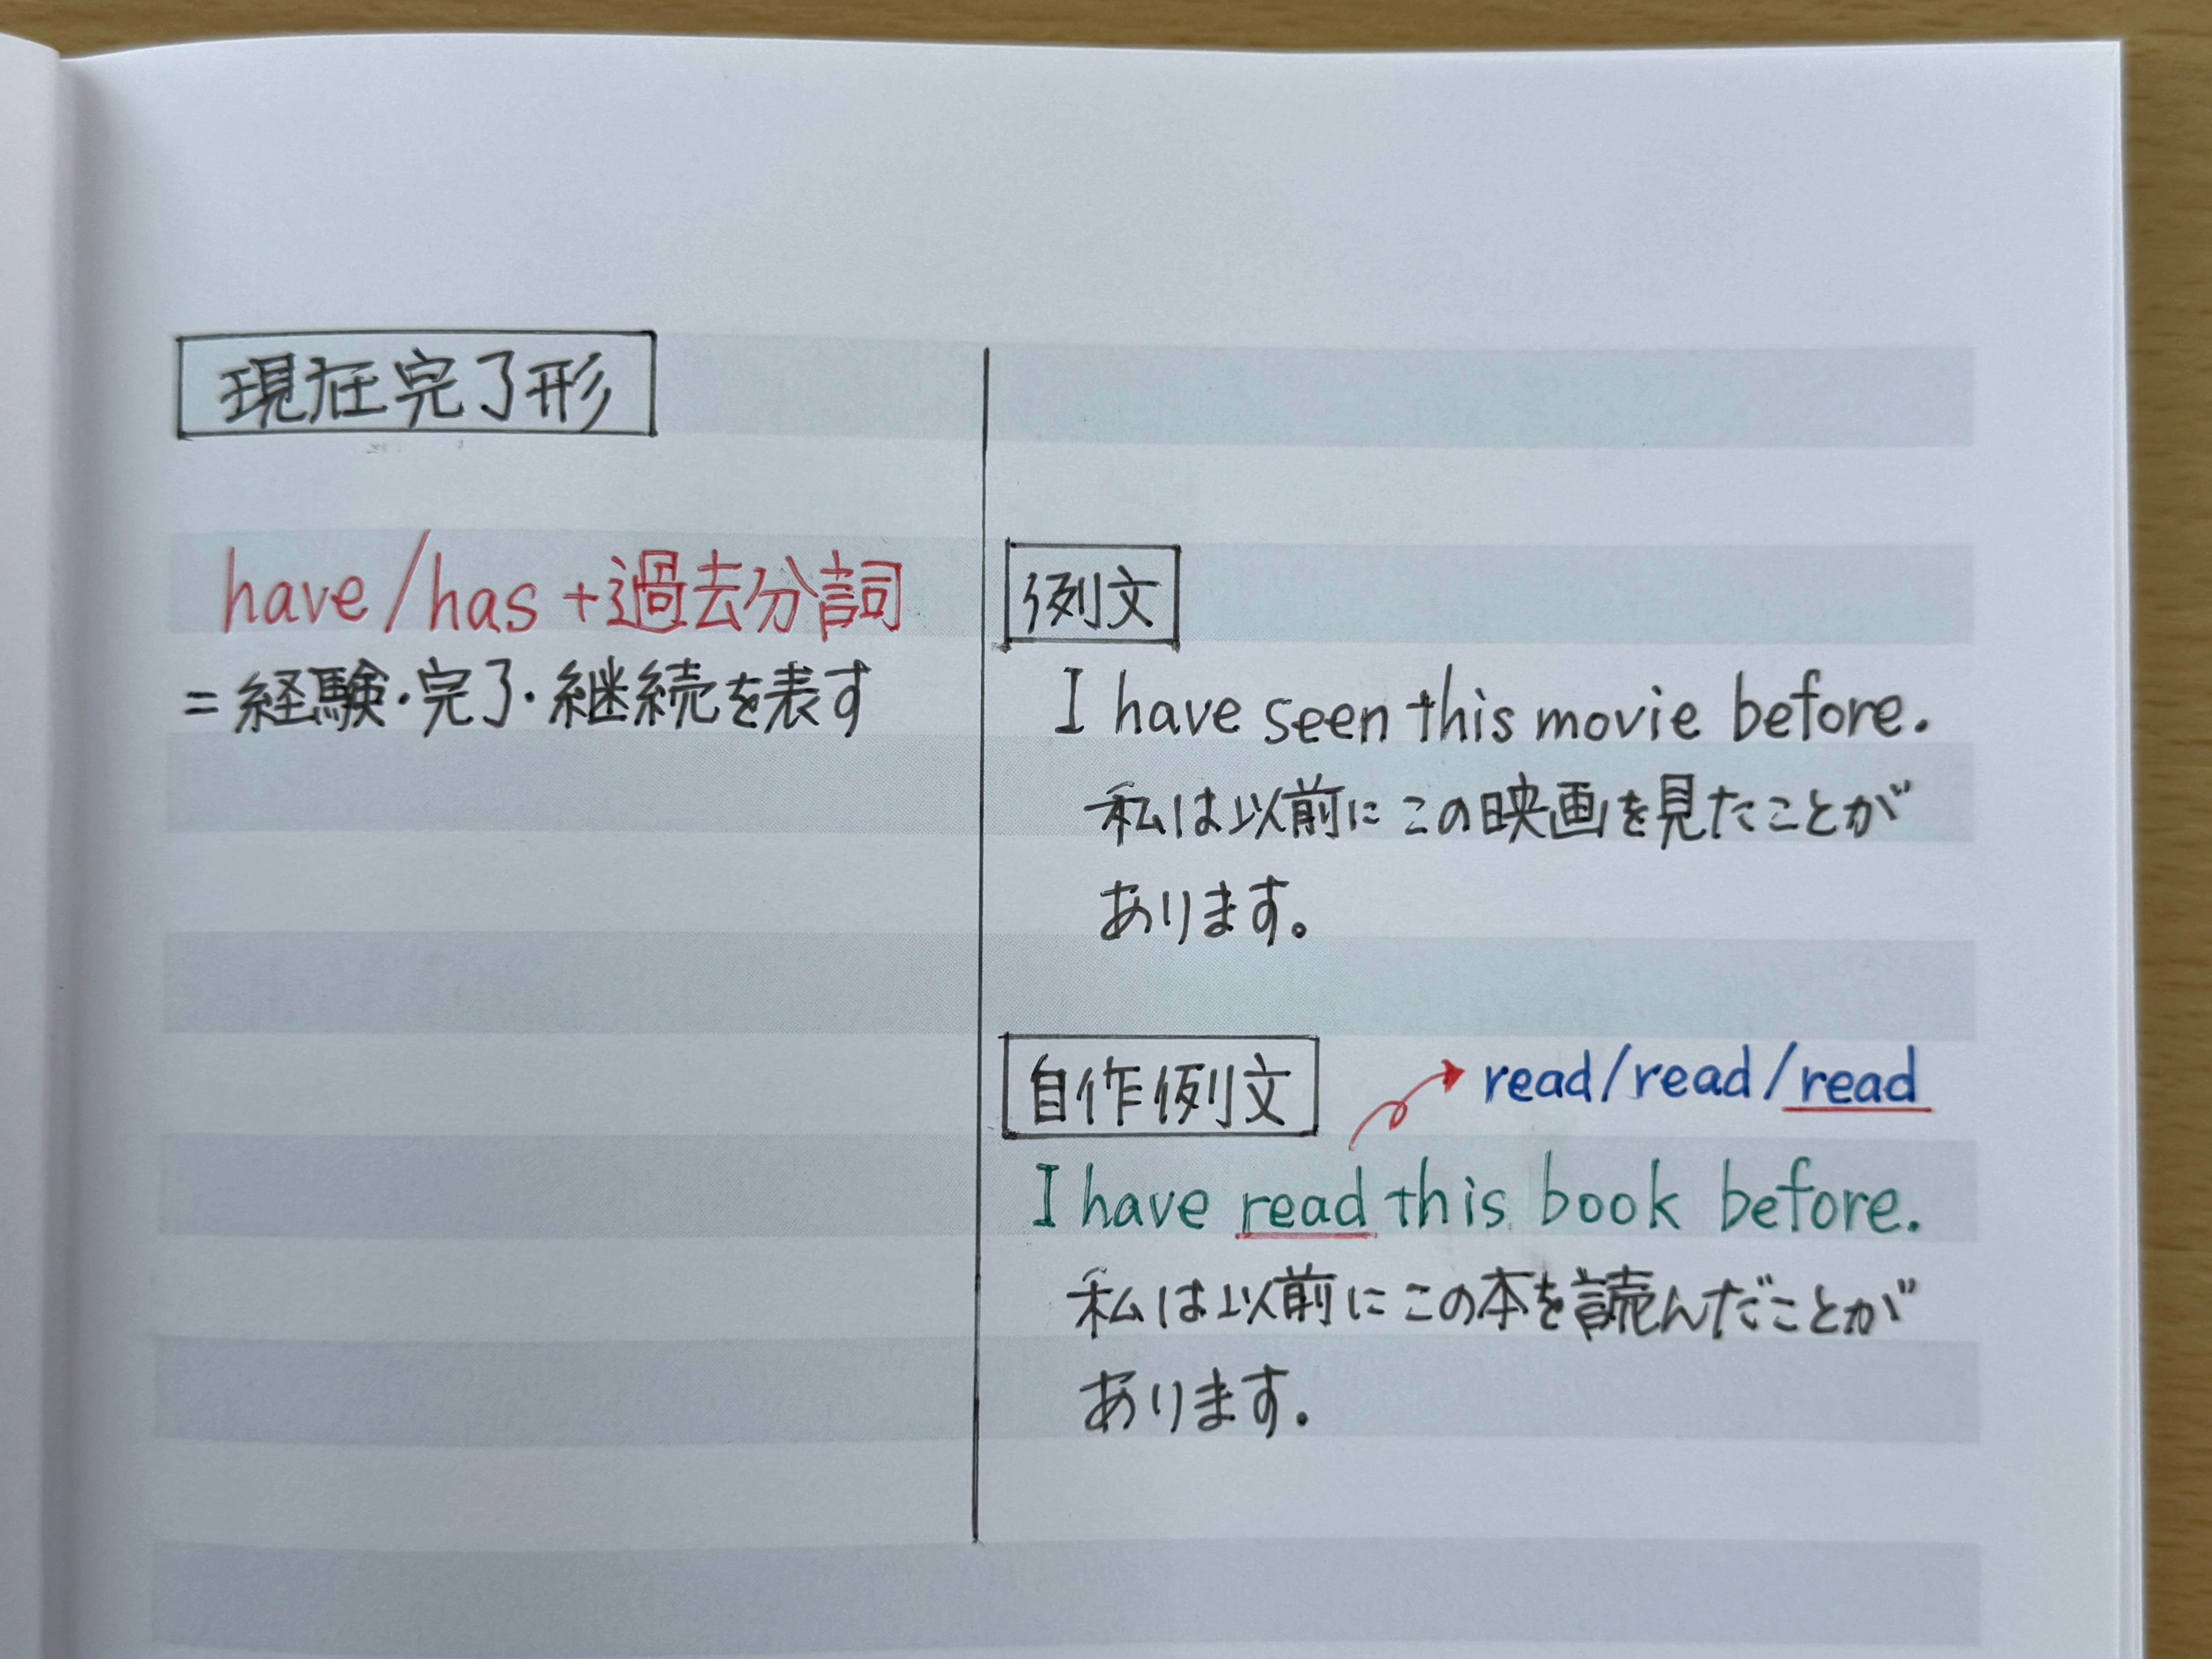 現在完了形
have/has+過去分詞
=経験・完了・継続を表す
例文
I have seen this movie before.
私は以前にこの映画を見たことが
あります。
自作例文
read/read/read
I have read this book before.
私は以前にこの本を読んだことが
あります。